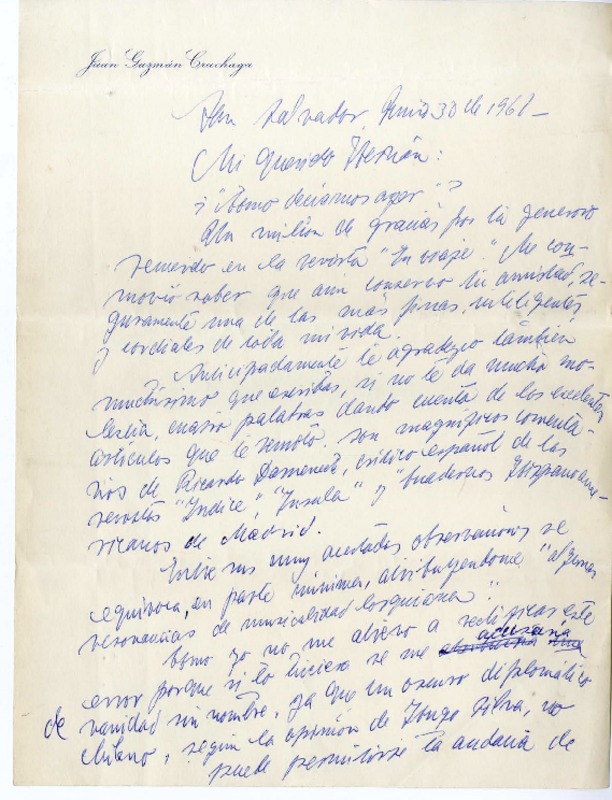 Juan Guzmán Cruchaga
San Salvador, Junio 30 de 1961 —
Mi querido Hernán:
¿"Como decíamos ayer"?
Un millón de gracias por tu generoso
recuerdo en la revista "En viaje". Me con-
movió saber que aún conservo tu amistad, se-
guramente una de las más finas, inteligentes
y cordiales de toda mi vida.
Anticipadamente te agradezco también
muchísimo que escribas, si no te da mucha mo-
lestia, cuatro palabras dando cuenta de los excelentes
artículos que te remito. Son magníficos comenta-
rios de Ricardo Domenech, crítico español de las
revistas "Indice", "Insula" y "Cuadernos Hispanoame-
ricanos de Madrid.
Entre sus muy acertadas observaciones se
equivoca, en parte mínima, atribuyéndome "algunas
resonancias de musicalidad lorquiana".
Como yo no me atrevo a rectificar este
error porque si lo hiciera se me acusaría
de vanidad sin nombre, ya que un oscuro diplomático
chileno, según la opinión de Hugo Silva, no
puede permitirse la audacia de